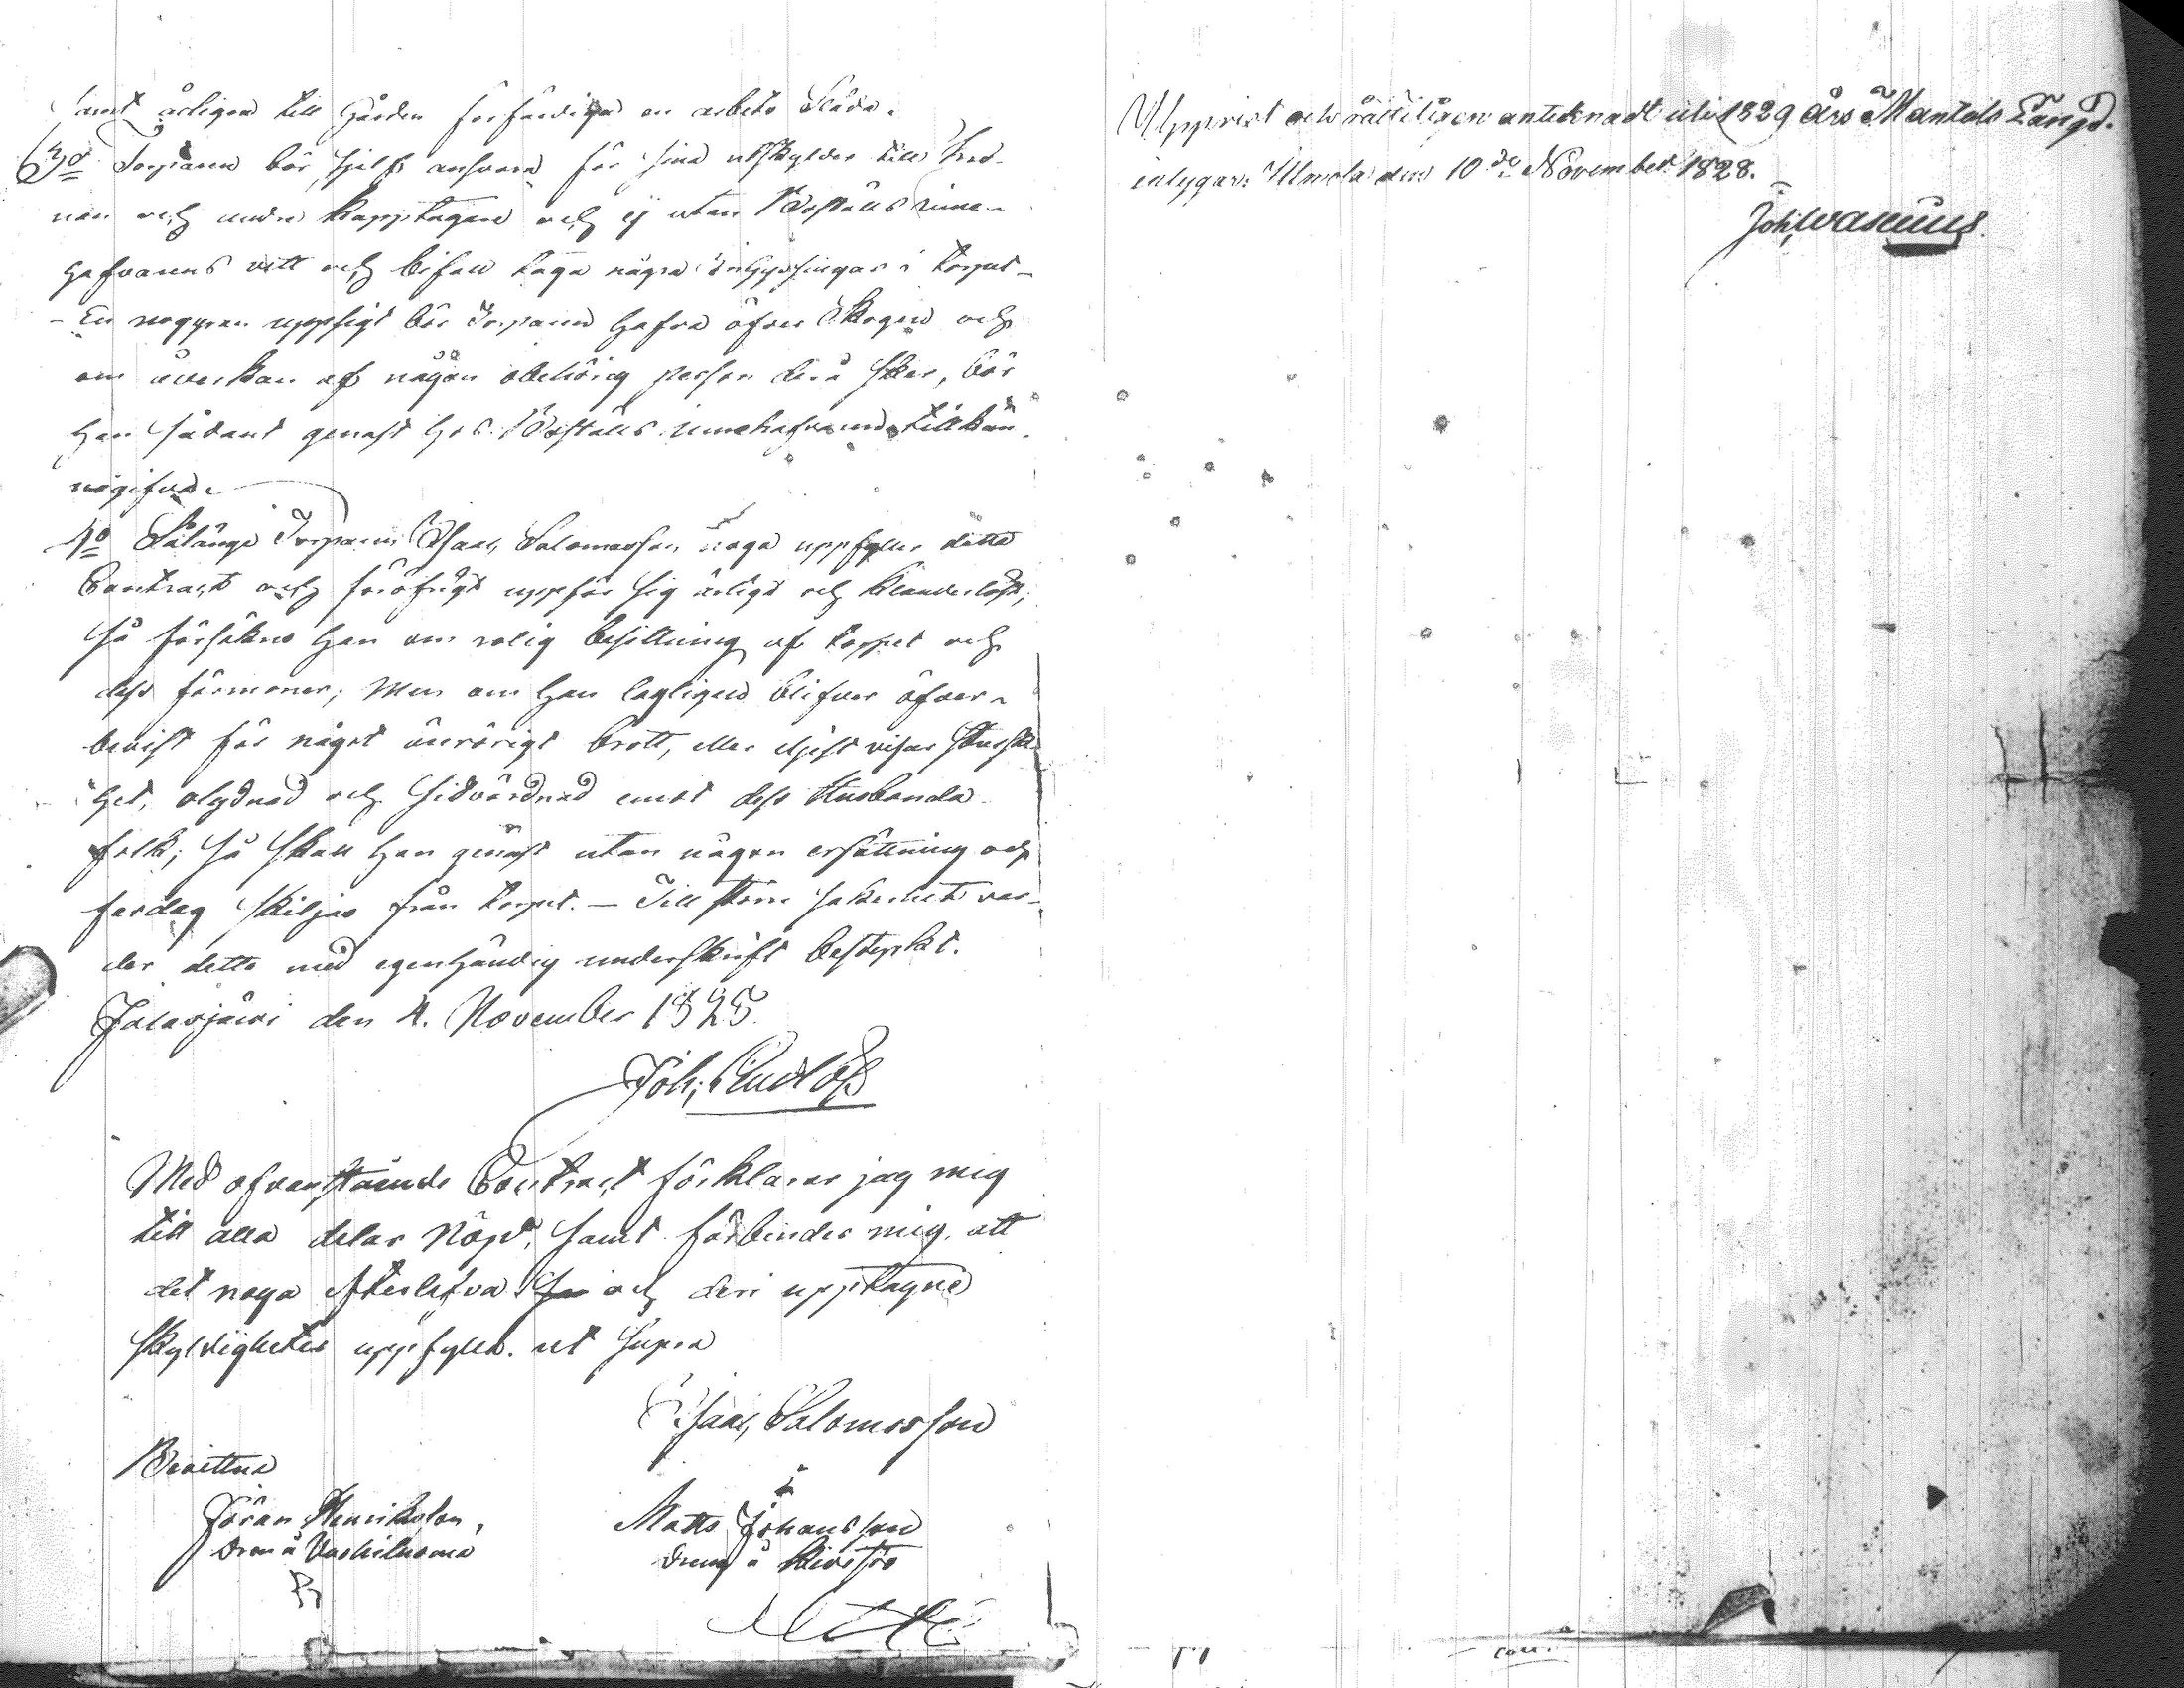 samt årligen till Gården förfärdiga en arbets Släda.
3:o Torparen bör sjelf ansvara för sina utskylder till Kro-
nan och andre Kapptagare och ej utan Boställs inne-
hafvarens vett och bifall taga några inhysingar i torpet -
- En noggran uppsigt bör Torparen hafva öfver Skogen och
om åverkan af någon obehörig person derå sker, bör
han sådant genast hos Boställs innehafvaren tillkän-
nagifva.
4:o Sålänge Torparen Isaac Salomonsson noga uppfyller detta
Contract och för öfrigt uppför sig ärligt och klanderlöst;
så försäkras han om rolig besittning af torpet och
dess förmoner; Men om han lagligen blifver öfver-
bevist för något ärerörigt brott, eller eljest visar
het, olydnad och sidvördnad emot dess Husbonda
folk; så skall han genast utan någon ersättning och
fardag skiljas från torpet. - Till större säkerhet var-
der detta med egenhändig underskrift bestyrkt.
Jalasjärvi den 4. November 1825.
Joh:
Med ofvanstående Contract förklarar jag mig
till alla delar nögd, samt förbinder mig, att
det noga efterlefva och deri upptagne
skyldigheter uppfylla. ut supra
Isaac Salomonsson
Bevittna
Jöran Henriksson, Matts Johansson
Dräng å
Upprist och rätteligen antecknadt uti 1829 Års Mantals Längd.
intygar: Ilmola den 10:de November 1828.
Joh: Wasenius